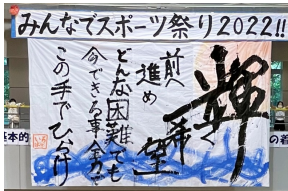 みんなでスポーツ祭り2022!!
輝く
希望
前へ
進め
どんな困難でも
今できる事全力で
この手でひらけ
基本的